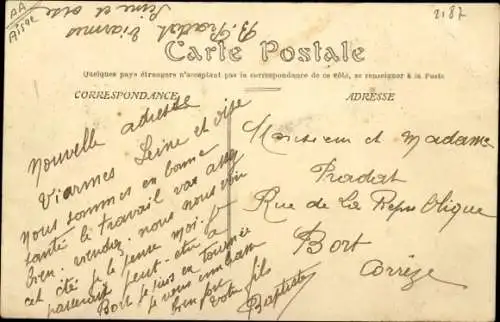 AA
Aisne
Seine et oise
B. Pradat Viarmes
2187
Carte Postale
Quelques pays étrangers n'acceptant pas la correspondance de ce côté, se renseigner à la Poste
CORRESPONDANCE
ADRESSE
Nouvelle adresse
Viarmes Seine et oise
Nous sommes en bonne
santé le travail va assez
bien. viendez nous voir
cet été je pense moi
passerai peut-etre a
Bort je suis en tournée
je vous embrasse
bien fort
votre fils
Baptiste
Monsieur et Madame
Pradat
Rue de la République
Bort
Corrèze